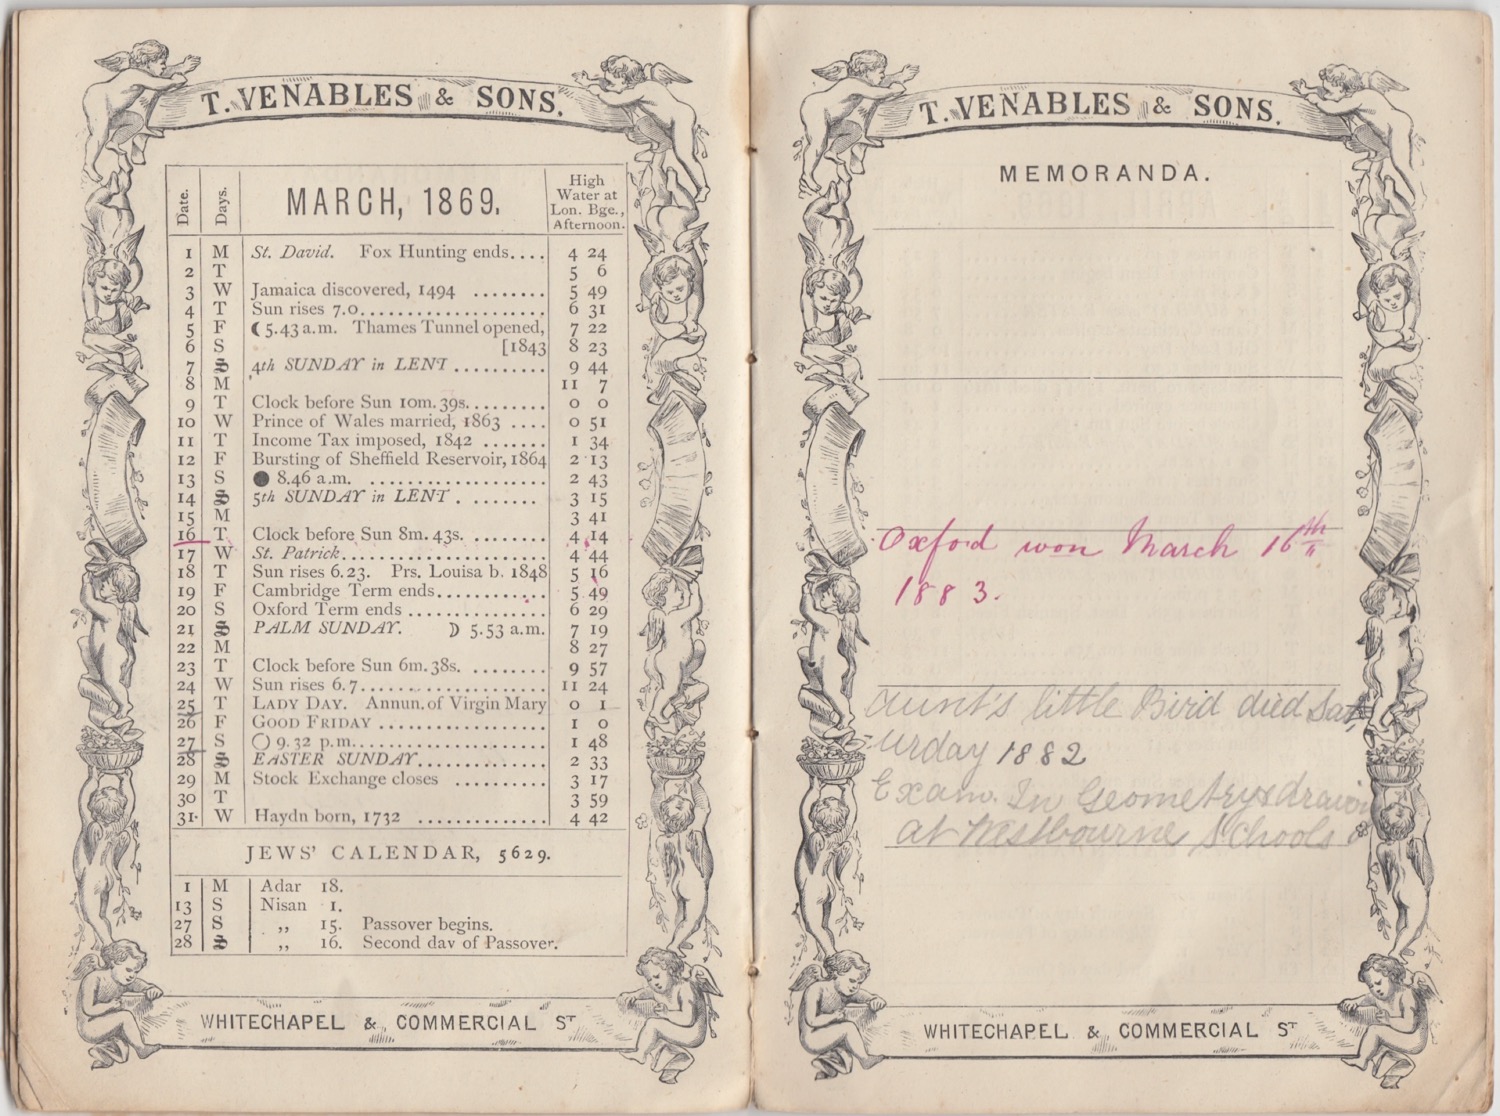 T. VENABLES & SONS.
Date. Days. MARCH, 1869. High Water at Lon. Bge., Afternoon.
1 M St. David. Fox Hunting ends.... 4 24
2 T 5 6
3 W Jamaica discovered, 1494 ........ 5 49
4 T Sun rises 7.0..................... 6 31
5 F ☾ 5.43 a.m. Thames Tunnel opened, 7 22
6 S [1843 8 23
7 S 4th SUNDAY in LENT .......... 9 44
8 M 11 7
9 T Clock before Sun 10m. 39s......... 0 0
10 W Prince of Wales married, 1863 .... 0 51
11 T Income Tax imposed, 1842 ....... 1 34
12 F Bursting of Sheffield Reservoir, 1864 2 13
13 S ● 8.46 a.m. ................... 2 43
14 S 5th SUNDAY in LENT . ....... 3 15
15 M 3 41
16 T Clock before Sun 8m. 43s. ........ 4 14
17 W St. Patrick...................... 4 44
18 T Sun rises 6.23. Prs. Louisa b. 1848 5 16
19 F Cambridge Term ends............ 5 49
20 S Oxford Term ends ............... 6 29
21 S PALM SUNDAY. ☽ 5.53 a.m. 7 19
22 M 8 27
23 T Clock before Sun 6m. 38s. ........ 9 57
24 W Sun rises 6.7.................... 11 24
25 T LADY DAY. Annun. of Virgin Mary 0 1
26 F GOOD FRIDAY .................. 1 0
27 S ○ 9.32 p.m..................... 1 48
28 S EASTER SUNDAY.............. 2 33
29 M Stock Exchange closes .......... 3 17
30 T 3 59
31 W Haydn born, 1732 .............. 4 42
JEWS' CALENDAR, 5629.
1 M Adar 18.
13 S Nisan 1.
27 S ,, 15. Passover begins.
28 S ,, 16. Second day of Passover.
WHITECHAPEL & COMMERCIAL ST
T. VENABLES & SONS.
MEMORANDA.
Oxford won March 16th
1883.
Aunt's little Bird died Sat
urday 1882
Exam. In Geometry & drawin
at Westbourne Schools
WHITECHAPEL & COMMERCIAL ST